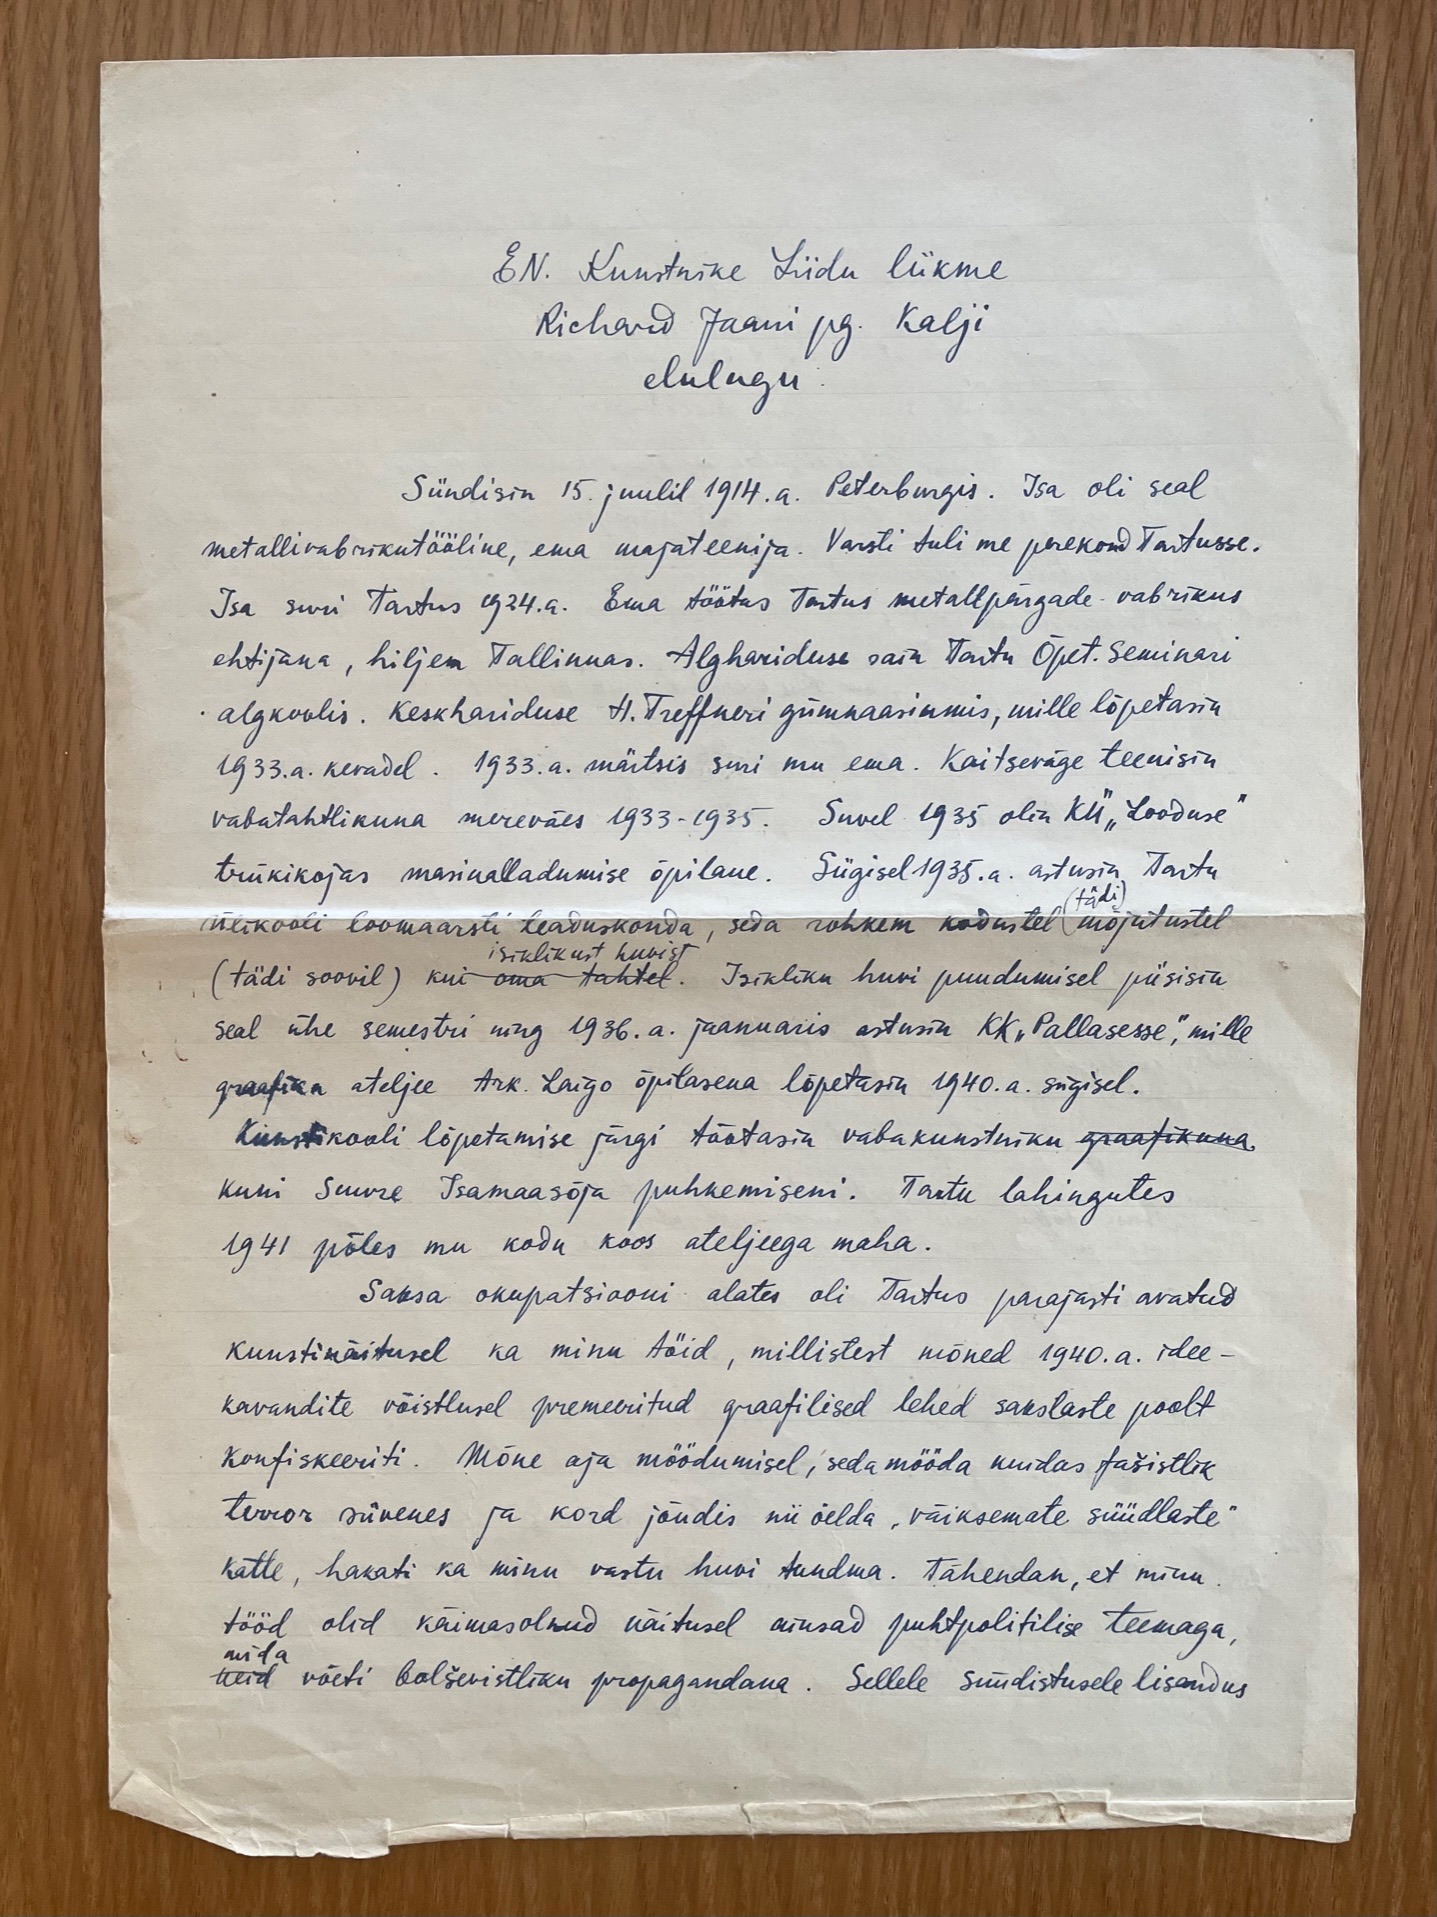 EN. Kunstnike Liidu liikme
Richard Jaani pg. Kalji
elulugu.
Sündisin 15. juulil 1914.a. Peterburgis. Isa oli seal
metallivabrikutööline, ema majateenija. Varsti tuli me perekond Tartusse.
Isa suri Tartus 1924.a. Ema töötas Tartus metallpärgade vabrikus
ehtijana, hiljem Tallinnas. Alghariduse sain Tartu Õpet. Seminari
algkoolis. Keskhariduse H. Treffneri gümnaasiumis, mille lõpetasin
1933.a. kevadel. 1933.a. märtsis suri mu ema. Kaitseväge teenisin
vabatahtlikuna mereväes 1933-1935. Suvel 1935 olin KÜ „Looduse"
trükikojas masinalladumise õpilane. Sügisel 1935.a. astusin Tartu
(tädi)
ülikooli loomaarsti teaduskonda, seda rohkem kodustel mõjutustel
isiklikust huvist
(tädi soovil) kui oma tahtel. Isikliku huvi puudumisel püsisin
seal ühe semestri ning 1936.a. jaanuaris astusin KK „Pallasesse", mille
graafika ateljee Ark. Laigo õpilasena lõpetasin 1940.a. sügisel.
Kunstikooli lõpetamise järgi töötasin vabakunstniku graafikuna
kuni Suure Isamaasõja puhkemiseni. Tartu lahingutes
1941 põles mu kodu koos ateljeega maha.
Saksa okupatsiooni alates oli Tartus parajasti avatud
kunstinäitusel ka minu töid, millistest mõned 1940.a. idee-
kavandite võistlusel premeeritud graafilised lehed sakslaste poolt
konfiskeeriti. Mõne aja möödumisel, sedamööda kuidas fašistlik
terror süvenes ja kord jõudis nii öelda „väiksemate süüdlaste"
kätte, hakati ka minu vastu huvi tundma. Tähendan, et minu
tööd olid käimasolnud näitusel ainsad puhtpolitilise teemaga,
mida
neid võeti bolševistliku propagandana. Sellele süüdistusele lisandus